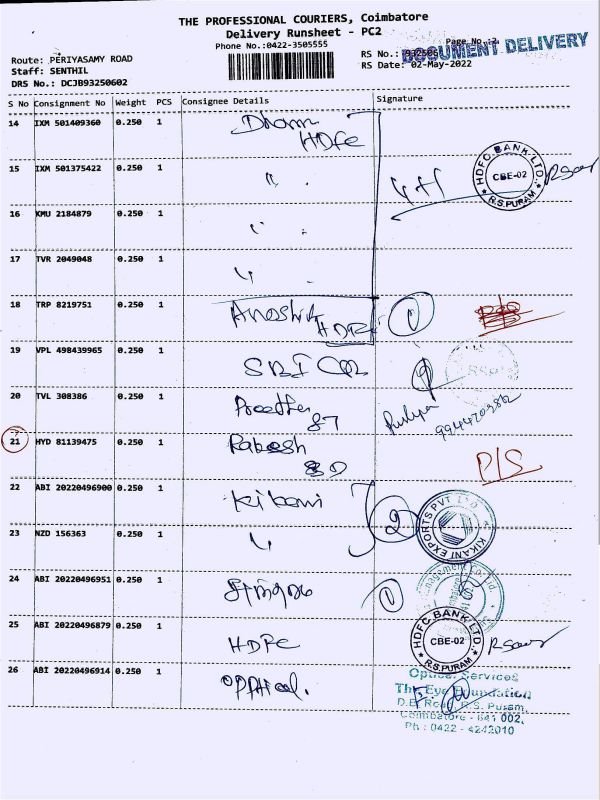 THE PROFESSIONAL COURIERS, Coimbatore
Delivery Runsheet - PC2
Phone No.:0422-3505555
Page No.:2
DOCUMENT DELIVERY
Route: PERIYASAMY ROAD
RS No.:
Staff: SENTHIL
RS Date: 02-May-2022
DRS No.: DCJB93250602
S No Consignment No Weight PCS Consignee Details Signature
14 IXM 501409360 0.250 1
HDFC
15 IXM 501375422 0.250 1 "
HDFC BANK LTD. CBE-02 R.S.PURAM
16 KMU 2184879 0.250 1 "
17 TVR 2049048 0.250 1 "
18 TRP 8219751 0.250 1
HDFC 1
19 VPL 498439965 0.250 1 SBI
20 TVL 308386 0.250 1
87
21 HYD 81139475 0.250 1 Rakesh P/S
22 ABI 20220496900 0.250 1 2
KIKANI EXPORTS PVT LTD
23 NZD 156363 0.250 1 "
24 ABI 20220496951 0.250 1 1
25 ABI 20220496879 0.250 1 HDFC
HDFC BANK LTD. CBE-02 R.S.PURAM
26 ABI 20220496914 0.250 1
Optical Services
The Eye Foundation
D.B. Road, R.S. Puram,
Coimbatore - 641 002.
Ph : 0422 - 4242010